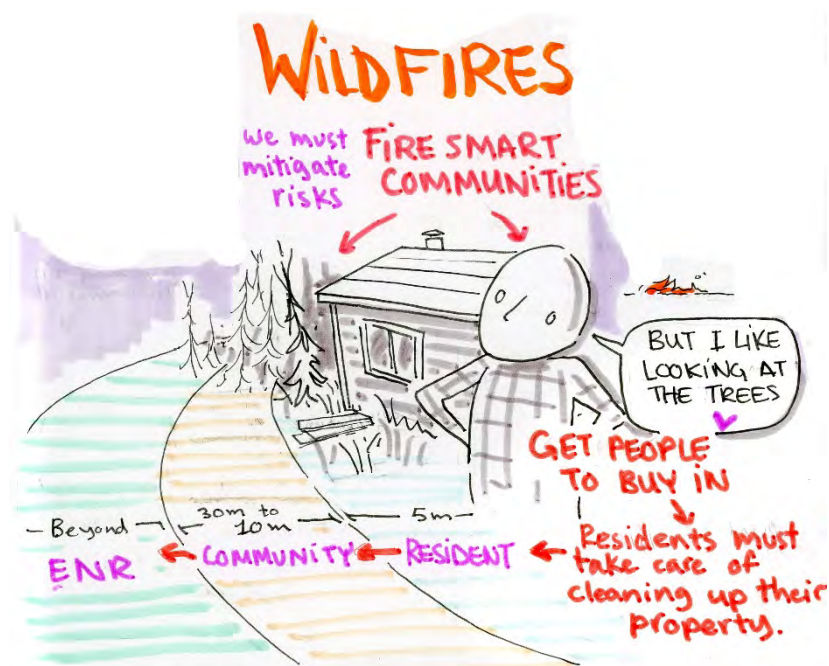 WILDFIRES
we must
mitigate
risks
FIRE SMART
COMMUNITIES
BUT I LIKE
LOOKING AT
THE TREES
GET PEOPLE
TO BUY IN
Residents must
take care of
cleaning up their
property.
Beyond
30m to
10m
5m
ENR
COMMUNITY
RESIDENT